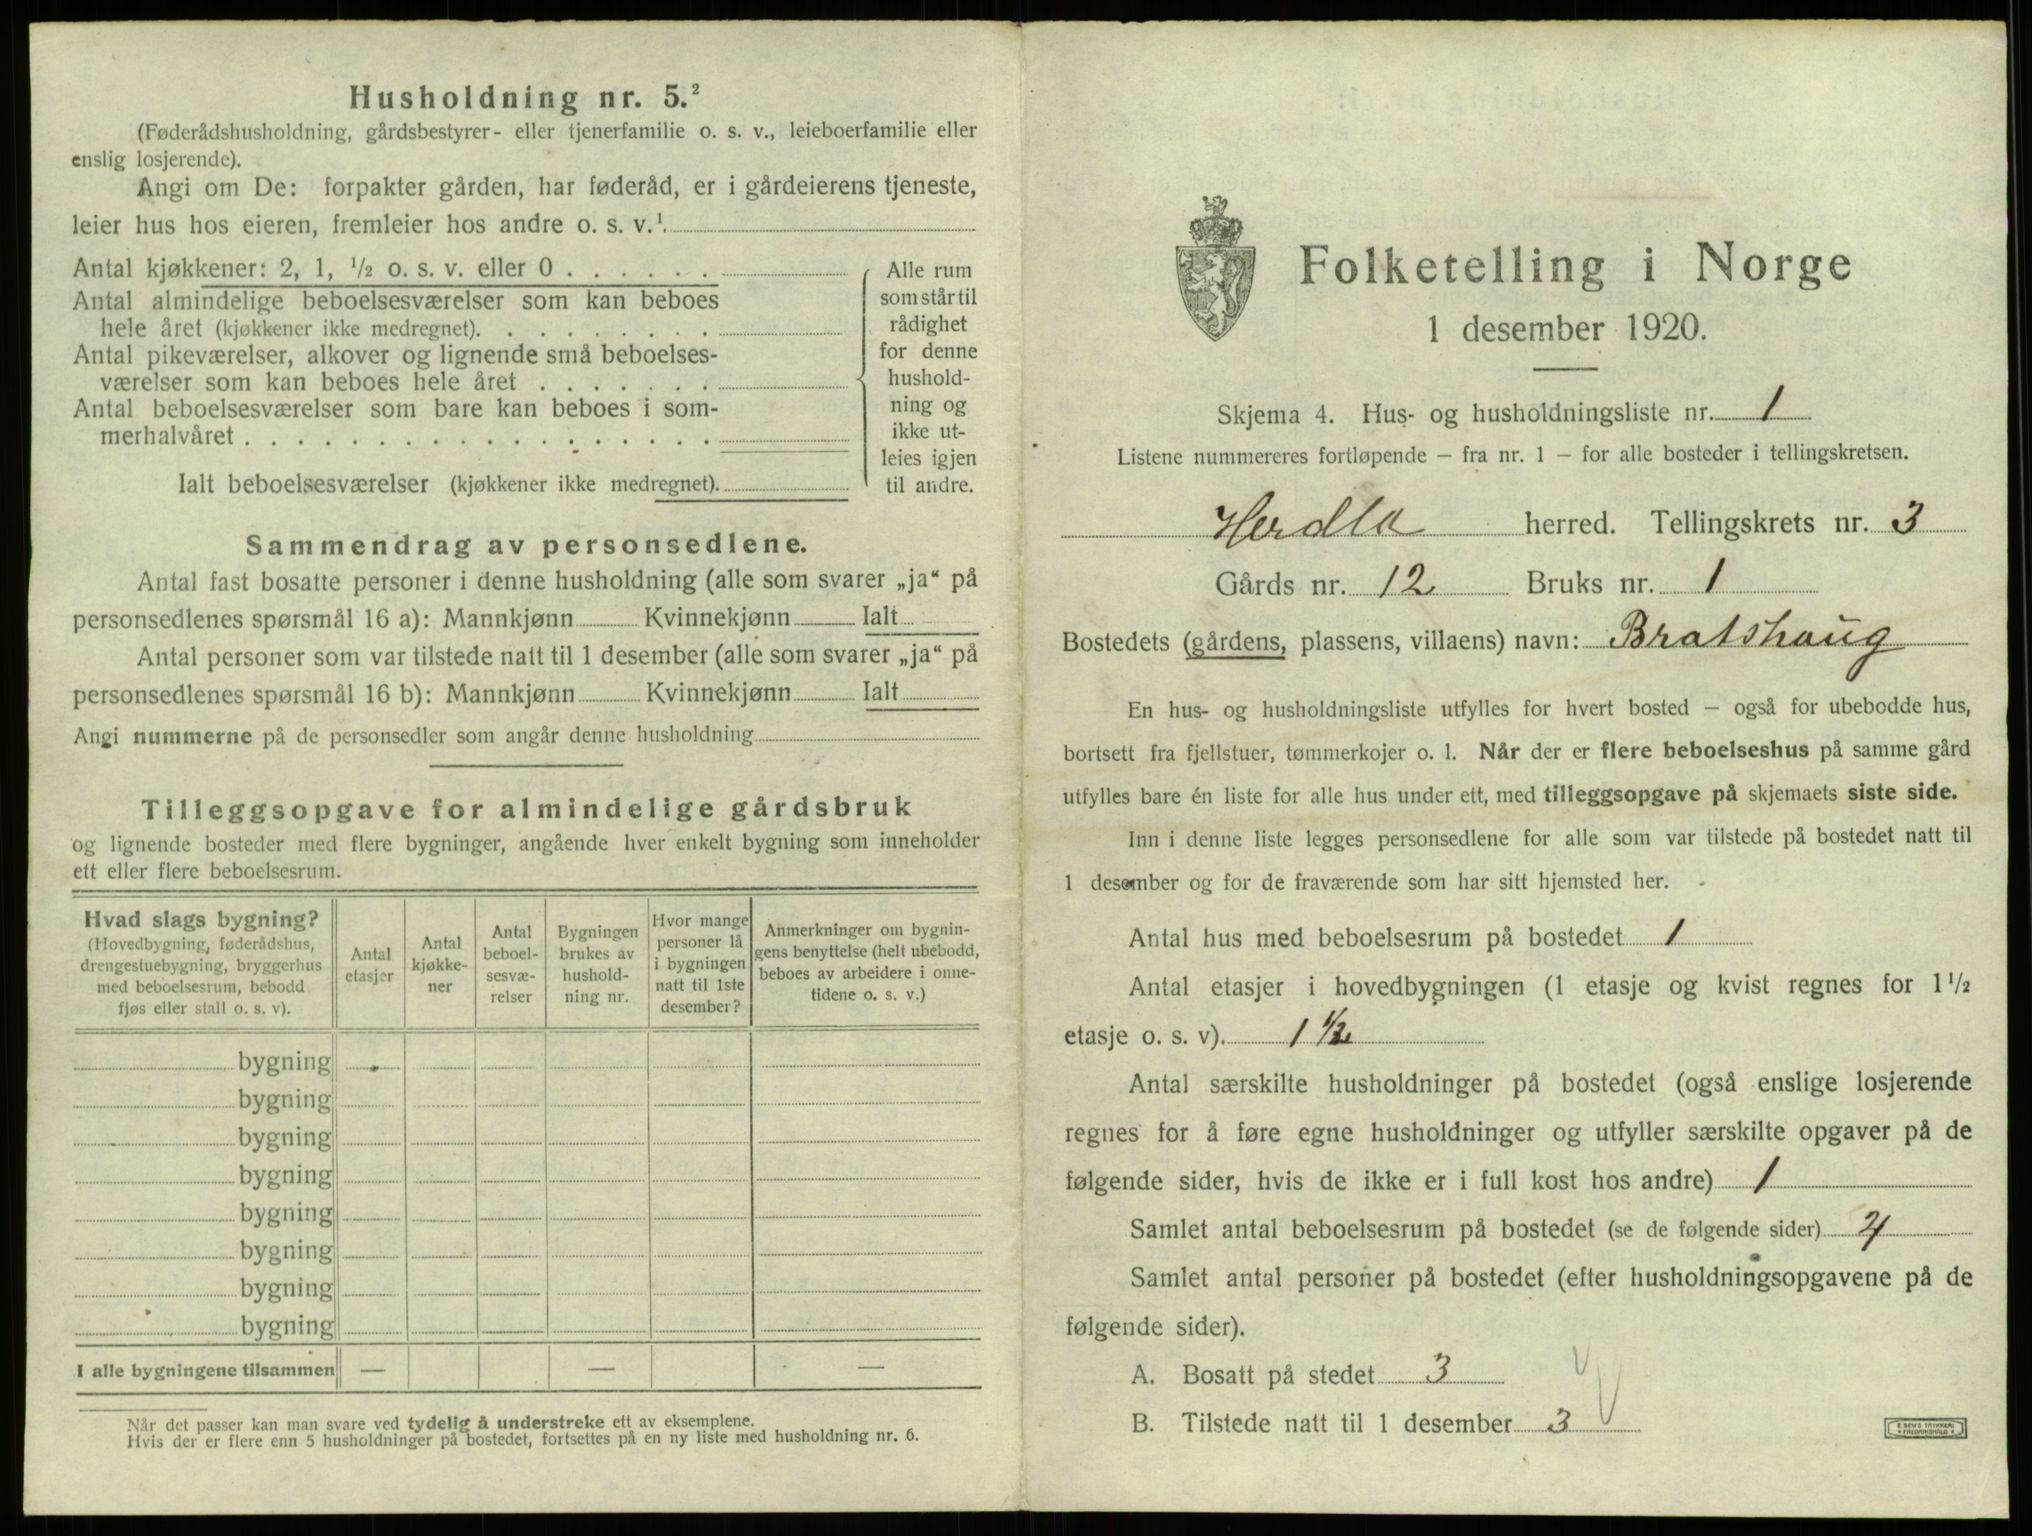 Husholdning nr. 5.²
(Føderådshusholdning, gårdsbestyrer- eller tjenerfamilie o. s. v., leieboerfamilie eller
enslig losjerende).
Angi om De: forpakter gården, har føderåd, er i gårdeierens tjeneste,
leier hus hos eieren, fremleier hos andre o. s. v.¹
Antal kjøkkener: 2, 1, ½ o. s. v. eller 0 . . . . . .
Antal almindelige beboelsesværelser som kan beboes
hele året (kjøkkener ikke medregnet). . . . . . . . .
Antal pikeværelser, alkover og lignende små beboelses-
værelser som kan beboes hele året . . . . . . .
Antal beboelsesværelser som bare kan beboes i som-
merhalvåret . . . . . . . . . . . . . . . . . .
Ialt beboelsesværelser (kjøkkener ikke medregnet).
Alle rum
som står til
rådighet
for denne
hushold-
ning og
ikke ut-
leies igjen
til andre.
Sammendrag av personsedlene.
Antal fast bosatte personer i denne husholdning (alle som svarer „ja“ på
personsedlenes spørsmål 16 a): Mannkjønn Kvinnekjønn Ialt
Antal personer som var tilstede natt til 1 desember (alle som svarer „ja“ på
personsedlenes spørsmål 16 b): Mannkjønn Kvinnekjønn Ialt
Angi nummerne på de personsedler som angår denne husholdning
Tilleggsopgave for almindelige gårdsbruk
og lignende bosteder med flere bygninger, angående hver enkelt bygning som inneholder
ett eller flere beboelsesrum.
Hvad slags bygning?
(Hovedbygning, føderådshus,
drengestuebygning, bryggerhus
med beboelsesrum, bebodd
fjøs eller stall o. s. v).
Antal
etasjer
Antal
kjøkke-
ner
Antal
beboel-
sesvæ-
relser
Bygningen
brukes av
hushold-
ning nr.
Hvor mange
personer lå
i bygningen
natt til 1ste
desember?
Anmerkninger om bygnin-
gens benyttelse (helt ubebodd,
beboes av arbeidere i onne-
tidene o. s. v.)
bygning
bygning
bygning
bygning
bygning
bygning
bygning
bygning
I alle bygningene tilsammen — — —
Når det passer kan man svare ved tydelig å understreke ett av eksemplene.
Hvis der er flere enn 5 husholdninger på bostedet, fortsettes på en ny liste med husholdning nr. 6.
Folketelling i Norge
1 desember 1920.
Skjema 4. Hus- og husholdningsliste nr. 1
Listene nummereres fortløpende – fra nr. 1 – for alle bosteder i tellingskretsen.
Herdla herred. Tellingskrets nr. 3
Gårds nr. 12 Bruks nr. 1
Bostedets (gårdens, plassens, villaens) navn: Bratshaug
En hus- og husholdningsliste utfylles for hvert bosted – også for ubebodde hus,
bortsett fra fjellstuer, tømmerkojer o. l. Når der er flere beboelseshus på samme gård
utfylles bare én liste for alle hus under ett, med tilleggsopgave på skjemaets siste side.
Inn i denne liste legges personsedlene for alle som var tilstede på bostedet natt til
1 desember og for de fraværende som har sitt hjemsted her.
Antal hus med beboelsesrum på bostedet 1
Antal etasjer i hovedbygningen (1 etasje og kvist regnes for 1½
etasje o. s. v). 1½
Antal særskilte husholdninger på bostedet (også enslige losjerende
regnes for å føre egne husholdninger og utfyller særskilte opgaver på de
følgende sider, hvis de ikke er i full kost hos andre) 1
Samlet antal beboelsesrum på bostedet (se de følgende sider) 4
Samlet antal personer på bostedet (efter husholdningsopgavene på de
følgende sider).
A. Bosatt på stedet 3
B. Tilstede natt til 1 desember 3